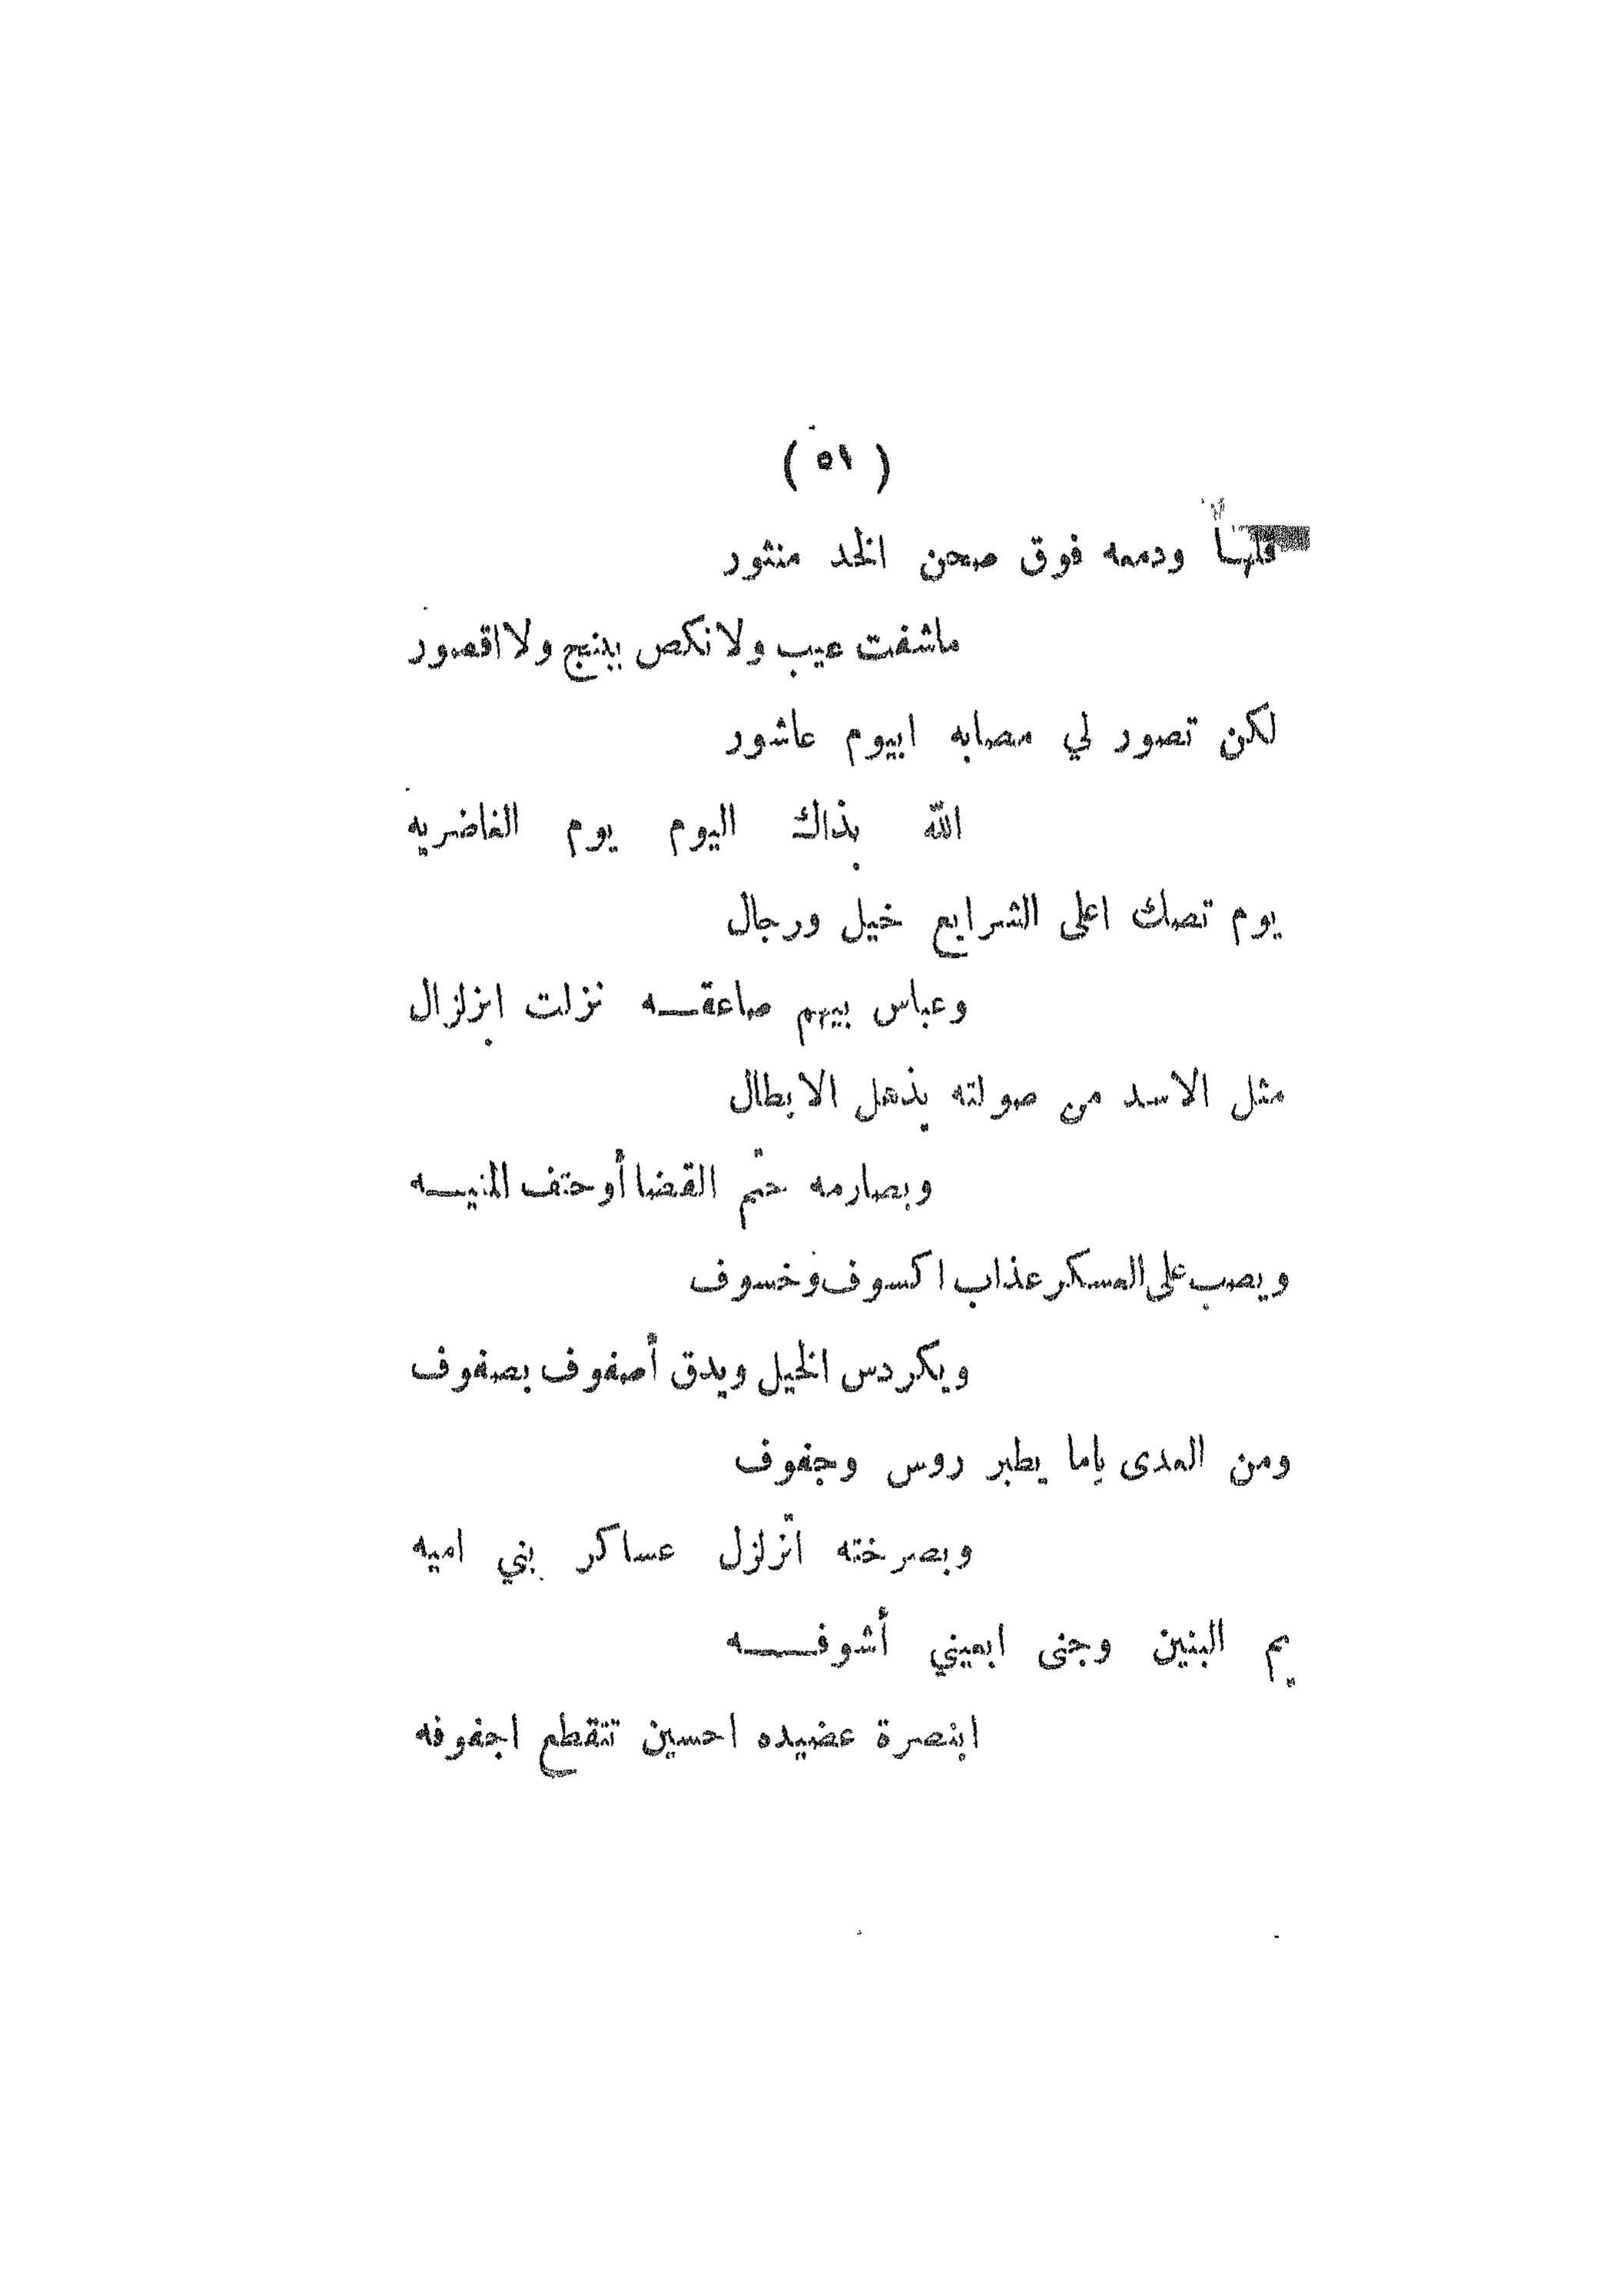 ( ٥١ )
قلها ودمعه فوق صحن الخد منثور
ماشفت عيب ولا نكص بينج ولا اقصور
لكن تصور لي مصابه ابيوم عاشور
الله بذاك اليوم يوم الغاضريه
يوم تصك اعلى الشرايع خيل ورجال
وعباس بيهم صاعقـه نزلت ابزلزال
مثل الاسد من صولته يذهل الابطال
وبصارمه حتم القضا أو حتف المنيـه
ويصب على العسكر عذاب اكسوف وخسوف
ويكردس الخيل ويدق أصفوف بصفوف
ومن العدى ياما يطبر روس وجفوف
وبصرخته اتزلزل عساكر بني اميه
يم البنين وجنى ابعيني أشوفـــه
ابنصرة عضيده احسين تتقطع اجفوفه